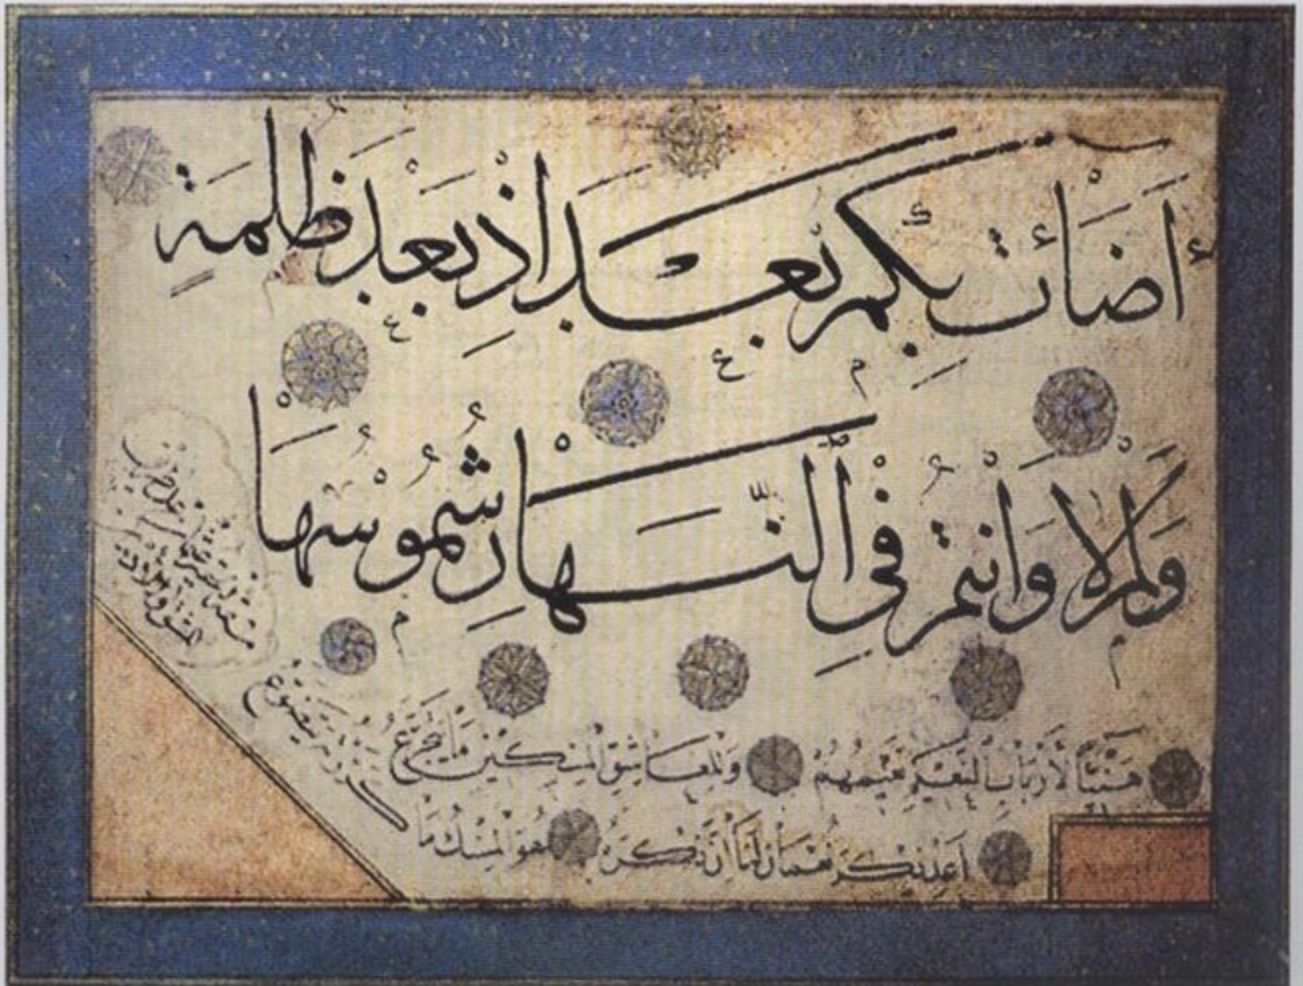 أَضَائَتْ بِكُمْ بَعْد اذِ بَعْدَ ظلمَةٍ
وَلِمْ لا وَانْتُمْ فِى النَّهَارِ شُمُوْسُهَا
هَنِيْئاً لِأَرْبَابِ النَّعِيْمِ نَعِيْمُهُمْ وَلِلْعَاشِقِ الْمِسْكِيْنِ مَا يَتَجَرَّعُ
اَعِدْ ذِكْرَ نُعْمَانَ لَنَا اِنَّ ذِكْرَهُ هُوَ الْمِسْكُ مَا كررته يتضوع